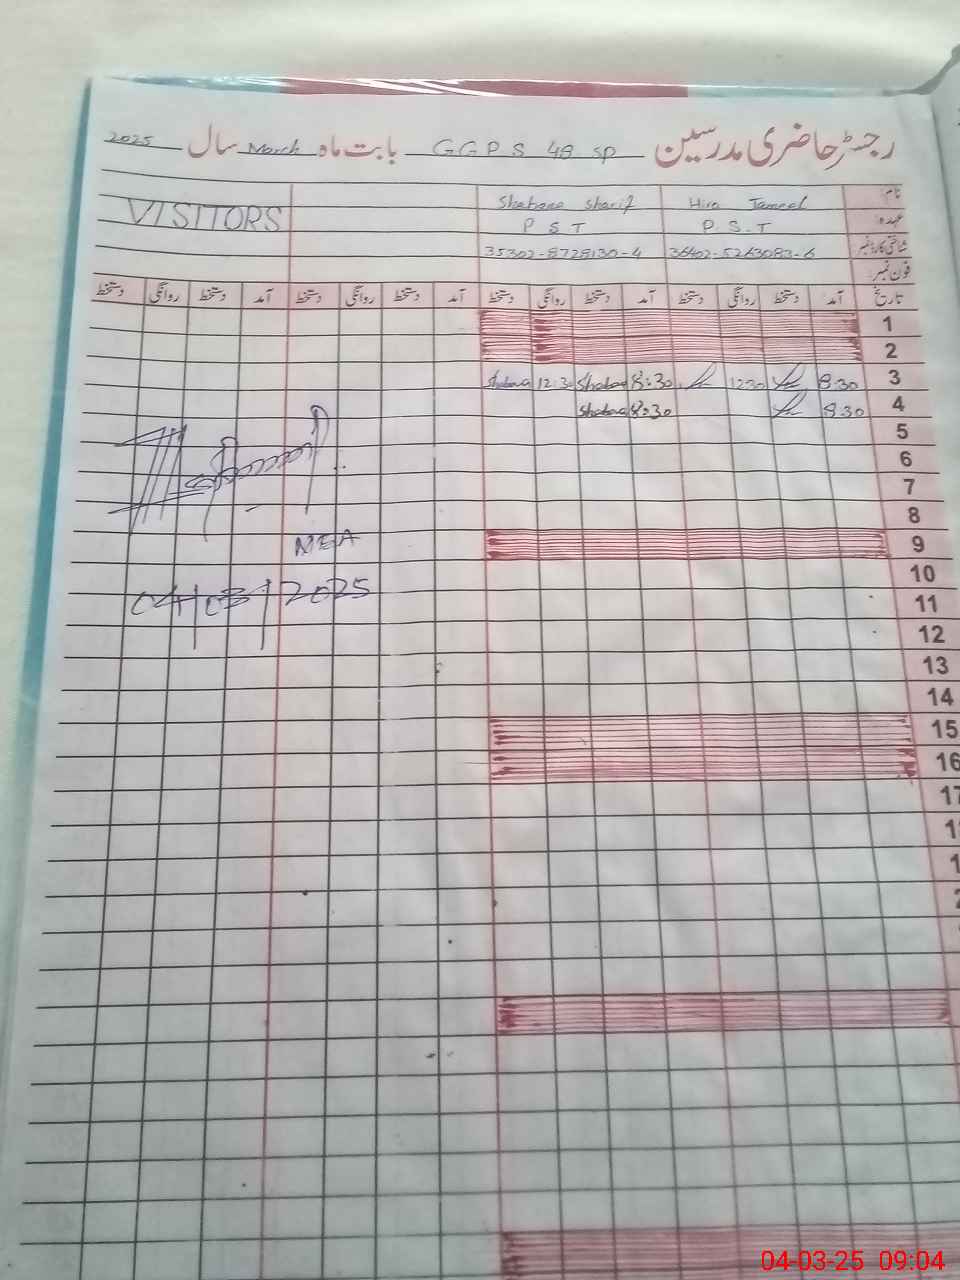 رجسٹر حاضری مدرسین G G P S 48 SP بابت ماہ March سال 2025
نام Hira Shabana Sharif VISITORS
عہدہ P.S.T P S T
شناختی کارڈ نمبر 36402-5263083-6 35302-8728130-4
فون نمبر
تاریخ آمد دستخط روانگی دستخط آمد دستخط روانگی دستخط آمد دستخط روانگی دستخط آمد دستخط روانگی دستخط
1
2
3 8:30 12:30 8:30 Shabana 12:30 Shabana
4 8:30 8:30 Shabana
5
6
7
8
9
MEA
10
04/03/2025
11
12
13
14
15
16
17
04-03-25 09:04